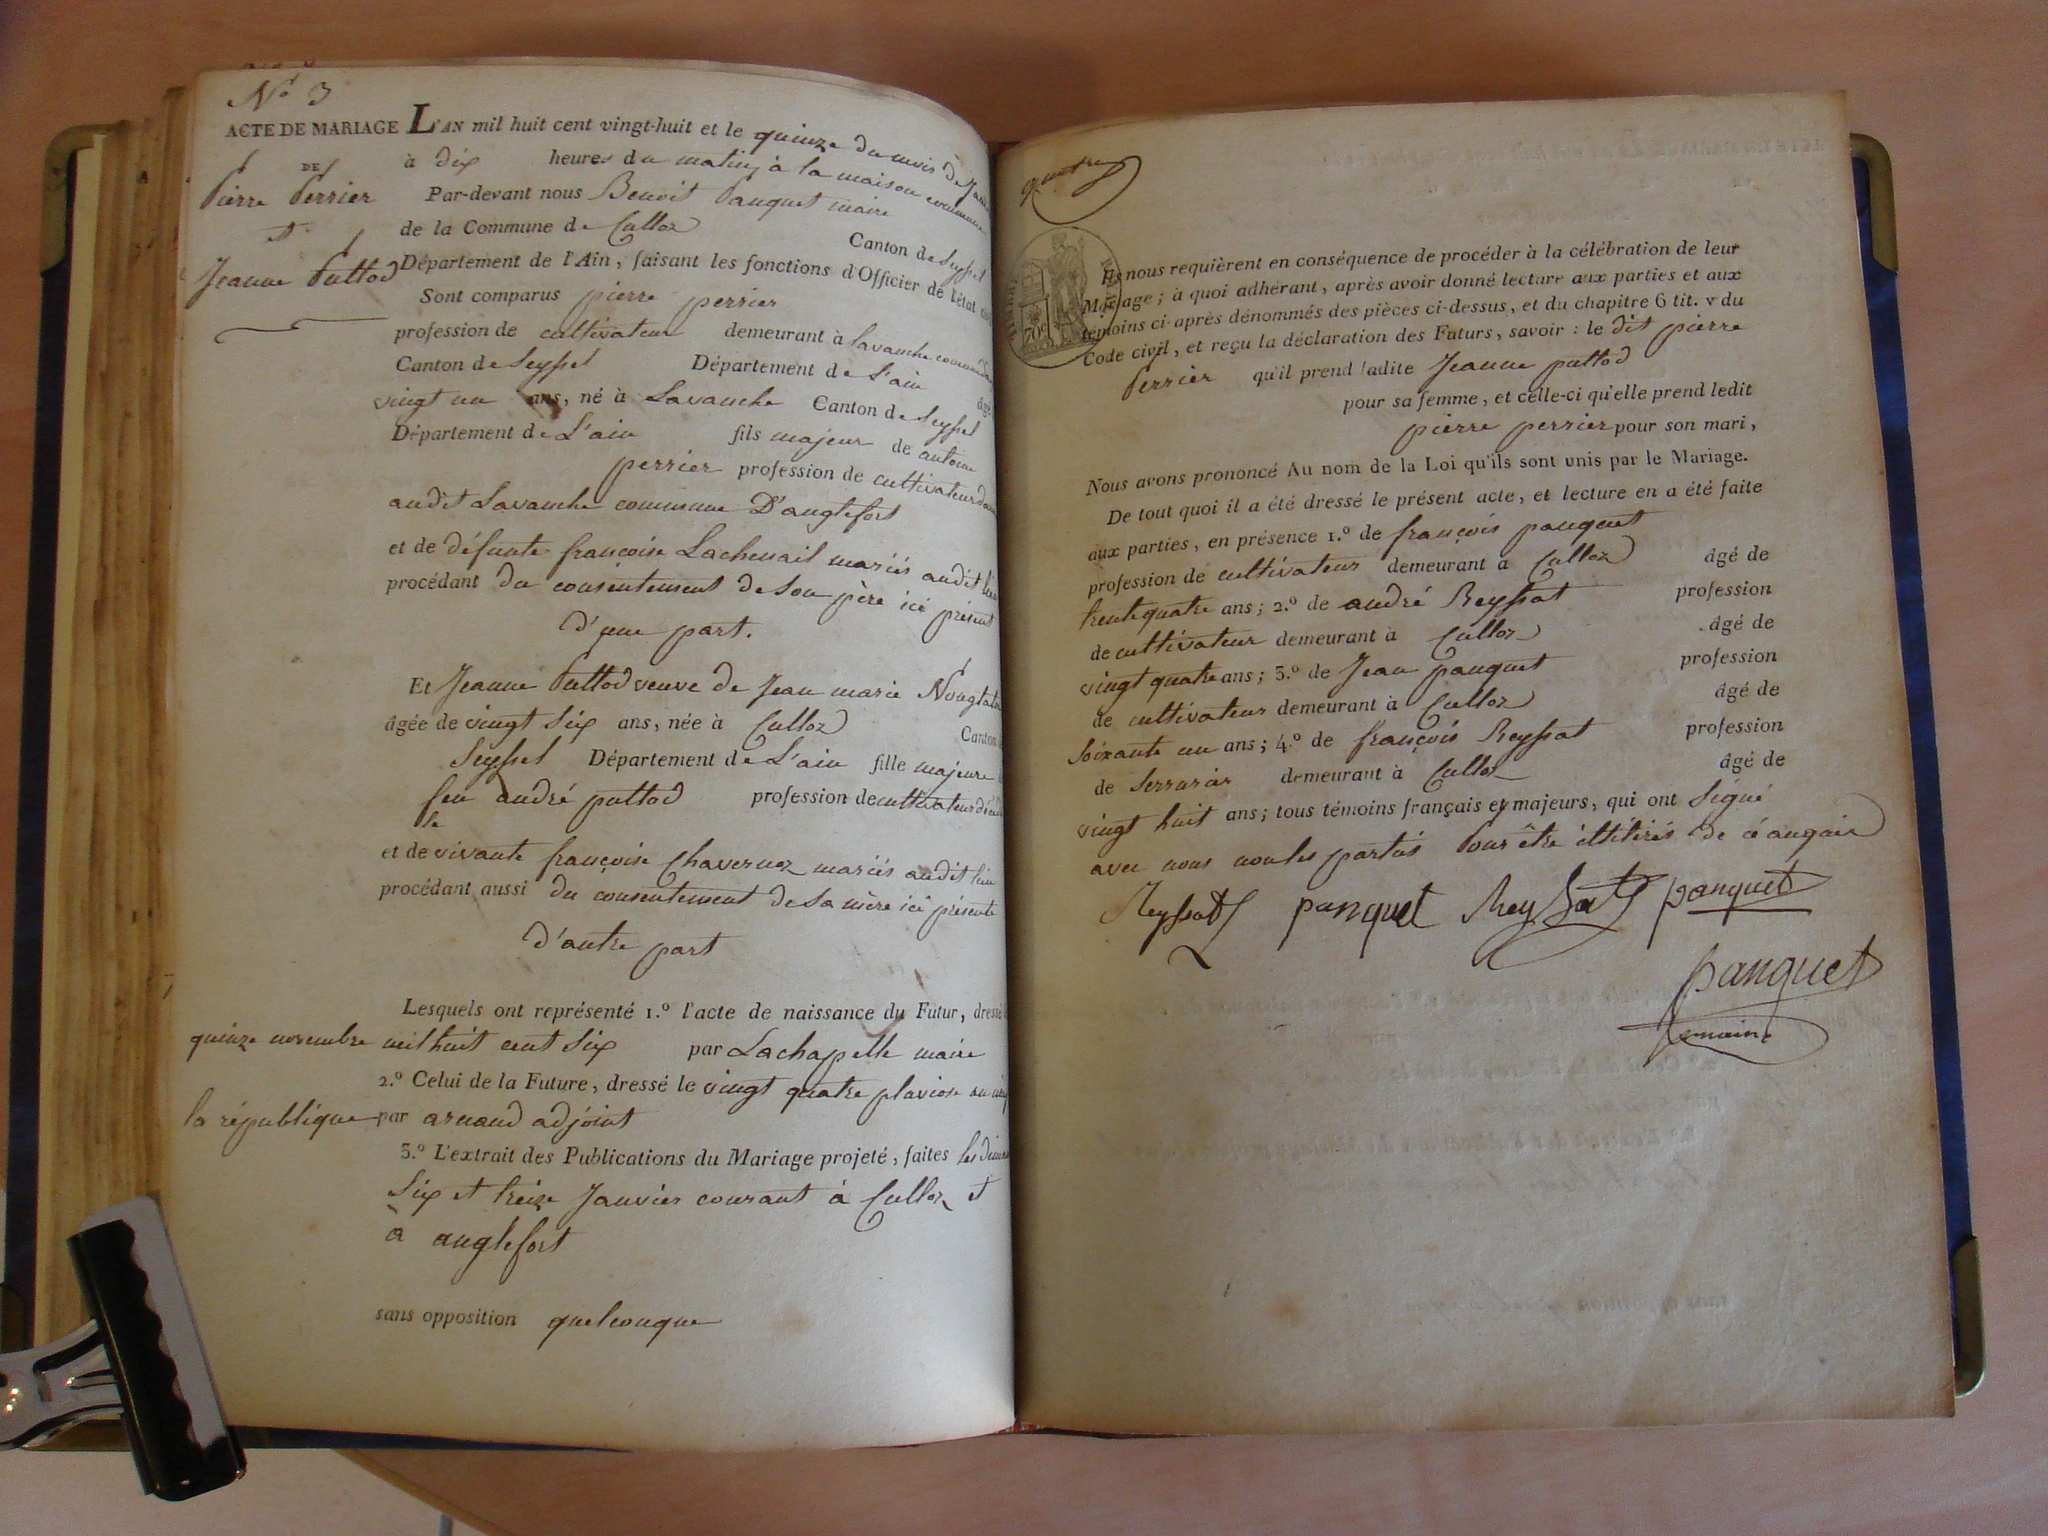 N.° 3
ACTE DE MARIAGE
DE
Pierre Perrier
et
Jeanne Puttod
L'AN mil huit cent vingt-huit et le quinze du mois de Janv
à dix heures du matin, à la maison commune
Par-devant nous Benoit Panquet maire
de la Commune de Culloz Canton de Seyssel
Département de l'Ain, faisant les fonctions d'Officier de l'état
Sont comparus pierre perrier
profession de cultivateur demeurant à Lavanche
Canton de Seyssel Département de L'ain âgé
vingt un ans, né à Lavanche Canton de Seyssel
Département de L'ain fils majeur de antoine
perrier profession de cultivateur
audit Lavanche commune D'anglefort
et de défunte françoise Lachenail mariés audit lieu
procédant du consentement de son père ici présent
d'une part.
Et Jeanne Puttod veuve de Jean marie
âgée de vingt six ans, née à Culloz Canton
Seyssel Département de L'ain fille majeure
feu andré puttod profession de cultivateur
et de vivante françoise Chavernoz mariés audit lieu
procédant aussi du consentement de sa mère ici présente
d'autre part
Lesquels ont représenté 1.° l'acte de naissance du Futur, dressé
quinze novembre mil huit cent six par Lachapelle maire
2.° Celui de la Future, dressé le vingt quatre pluviose an
la république par arnaud adjoint
3.° L'extrait des Publications du Mariage projeté, faites les
six et treize Janvier courant à Culloz et
à anglefort
sans opposition quelconque
quatre
70c
Ils nous requièrent en conséquence de procéder à la célébration de leur
Mariage; à quoi adhérant, après avoir donné lecture aux parties et aux
témoins ci-après dénommés des pièces ci-dessus, et du chapitre 6 tit. v du
Code civil, et reçu la déclaration des Futurs, savoir : le dit pierre
Perrier qu'il prend ladite Jeanne puttod
pour sa femme, et celle-ci qu'elle prend ledit
pierre perrier pour son mari,
Nous avons prononcé Au nom de la Loi qu'ils sont unis par le Mariage.
De tout quoi il a été dressé le présent acte, et lecture en a été faite
aux parties, en présence 1.° de françois panquet
profession de cultivateur demeurant à Culloz âgé de
trente quatre ans; 2.° de andré Reyssat profession
de cultivateur demeurant à Culloz âgé de
vingt quatre ans; 3.° de Jean panquet profession
de cultivateur demeurant à Culloz âgé de
soixante un ans; 4.° de françois Reyssat profession
de serrurier demeurant à Culloz âgé de
vingt huit ans; tous témoins français et majeurs, qui ont signé
avec nous non les parties Pour être illitérés de ce
Reyssat panquet Reyssat panquet
panquet
maire